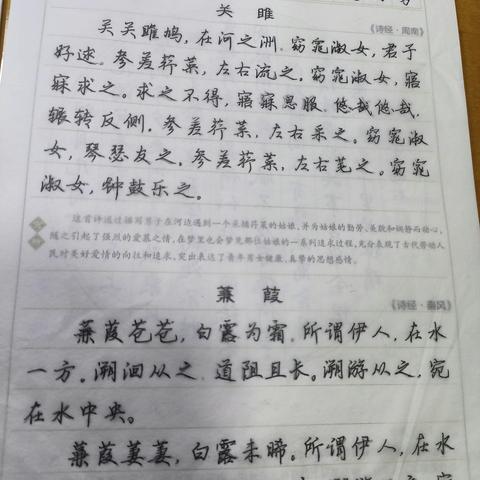 关雎
《诗经·周南》
关关雎鸠，在河之洲。窈窕淑女，君子
好逑。参差荇菜，左右流之。窈窕淑女，寤
寐求之。求之不得，寤寐思服。悠哉悠哉，
辗转反侧。参差荇菜，左右采之。窈窕淑
女，琴瑟友之。参差荇菜，左右芼之。窈窕
淑女，钟鼓乐之。
这首诗通过描写男子在河边遇到一个采摘荇菜的姑娘，并为姑娘的勤劳、美貌和娴静而动心，
随之引起了强烈的爱慕之情，在梦里也会梦见那位姑娘的一系列追求过程，充分表现了古代劳动人
民对美好爱情的向往和追求，突出表达了青年男女健康、真挚的思想感情。
蒹葭
《诗经·秦风》
蒹葭苍苍，白露为霜。所谓伊人，在水
一方。溯洄从之，道阻且长。溯游从之，宛
在水中央。
蒹葭萋萋，白露未晞。所谓伊人，在水